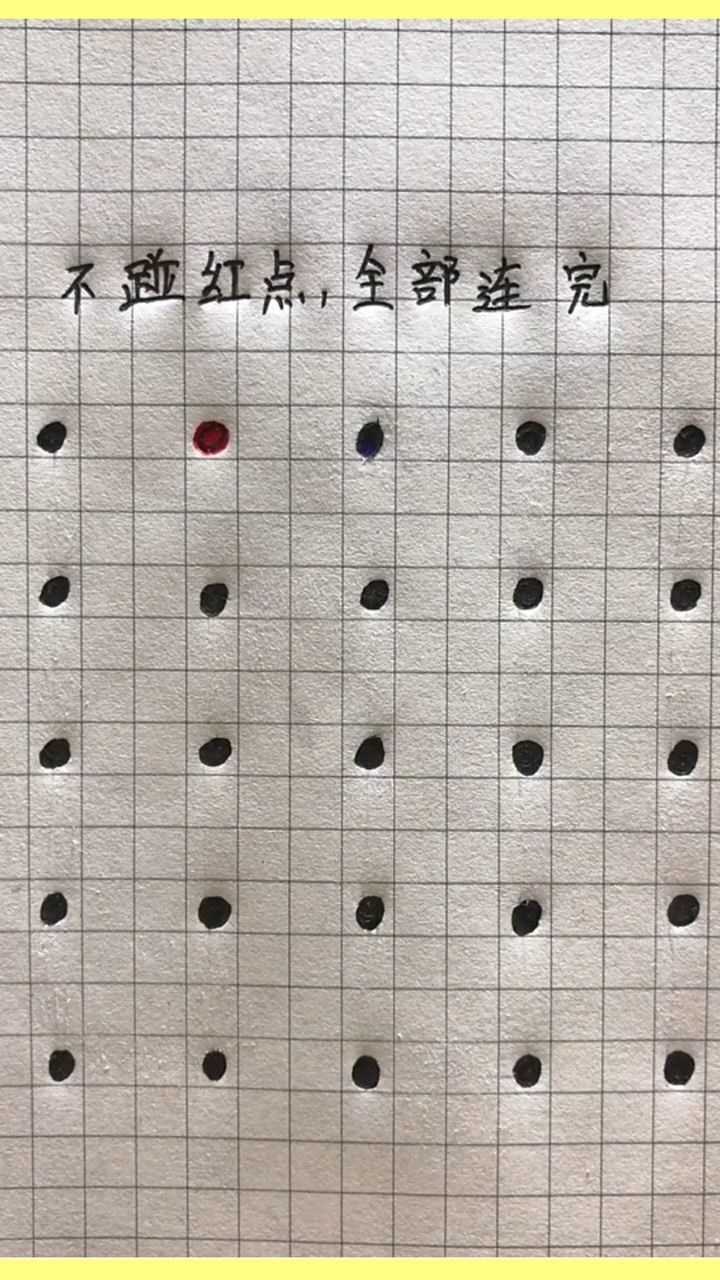 不碰红点,全部连完